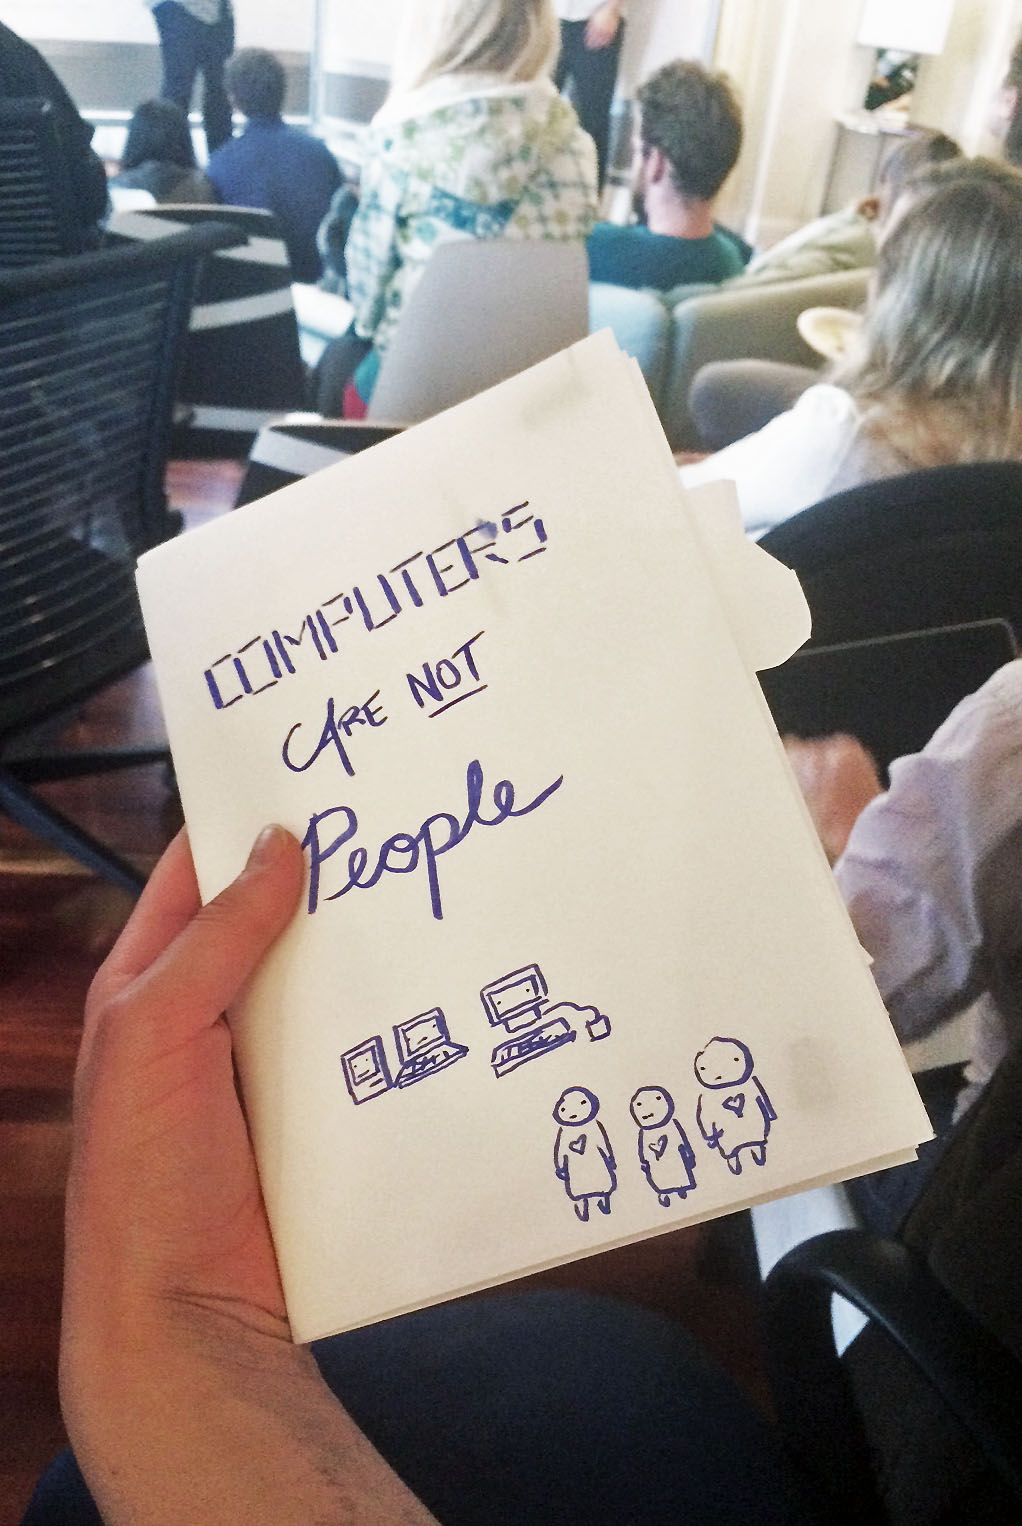 COMPUTERS
ARE NOT
People